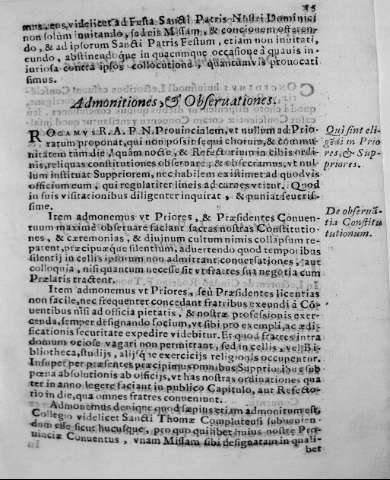 85
mus, ens, videlicet ad Festa Sancti Patris Nostri Dominici
non solùm inuitando, sed eis Missam, & concionem offeren-
do, & ad ipsorum Sancti Patris Festum, etiam non inuitati,
eundo, abstinendoq́ue in quacumque occasione à quauis in-
iuriosa contra ipsos collocutione, quantumvis prouocati
simus.
Admonitiones, & Obseruationes.
ROGAMVS R. A. P. N. Prouincialem, vt nullum ad Prio-
ratum proponat, qui non possit sequi chorum, & commu-
nitatem tàm in Aquilonocte, & Refectorium cibis ordi-
nis, reliquas constitutiones obseruare; & obsecramus, vt nul-
lum instituat Suppriorem, nec habilem existimet ad quodvis
officium eum, qui regulariter lineis ad carnes vtitur. Quod
in suis visitationibus diligenter inquirat, & puniat seueris-
sime.
Qui sint eli-
gēdi in Prio
res, & Sup-
priores.
Item admonemus vt Priores, & Præsidentes Conuen-
tuum maximè obseruare faciant sacras nostras Constitutio-
nes, & cæremonias, & diuinum cultum nimis collapsum re-
parent, præcipuæque silentium, aduertendo quod tempoibus
silentij in cellis ipsorum non admittant conuersationes, aut
colloquia, nisi quantum necesse sit vt fratres sua negotia cum
Prælatis tractent.
De obseruā-
tia Constitu
tutionum.
Item admonemus vt Priores, seu Præsidentes licentias
non facile, nec frequenter concedant fratribus exeundi à Cō-
uentibus nisi ad officia pietatis, & nostræ professionis exer-
cenda, semper designando socium, vt sibi pro exempli, ac ædi-
ficationis securitate expedire videbitur. Et quod fratres intra
domum otiose vagari non permittant, sed in cellis, vel Bi-
bliotheca, studijs, alijsque exercicijs religiosis occupentur.
Insuper per præsentes præcipimus omnibus Superioribus sub
pœna absolutionis ab officijs, vt has nostras ordinationes qua
ter in anno legere faciant in publico Capitulo, aut Refecto-
rio in die, qua omnes fratres conueniunt.
Admonemus denique quod sæpius etiam admonitum est,
Collegio videlicet Sancti Thomæ Complutensi subuenien-
dum esse, sicut hucusque, pro quo quilibet huius nostræ Pro-
uinciæ Conuentus, vnam Missam sibi designatam in quali-
bet